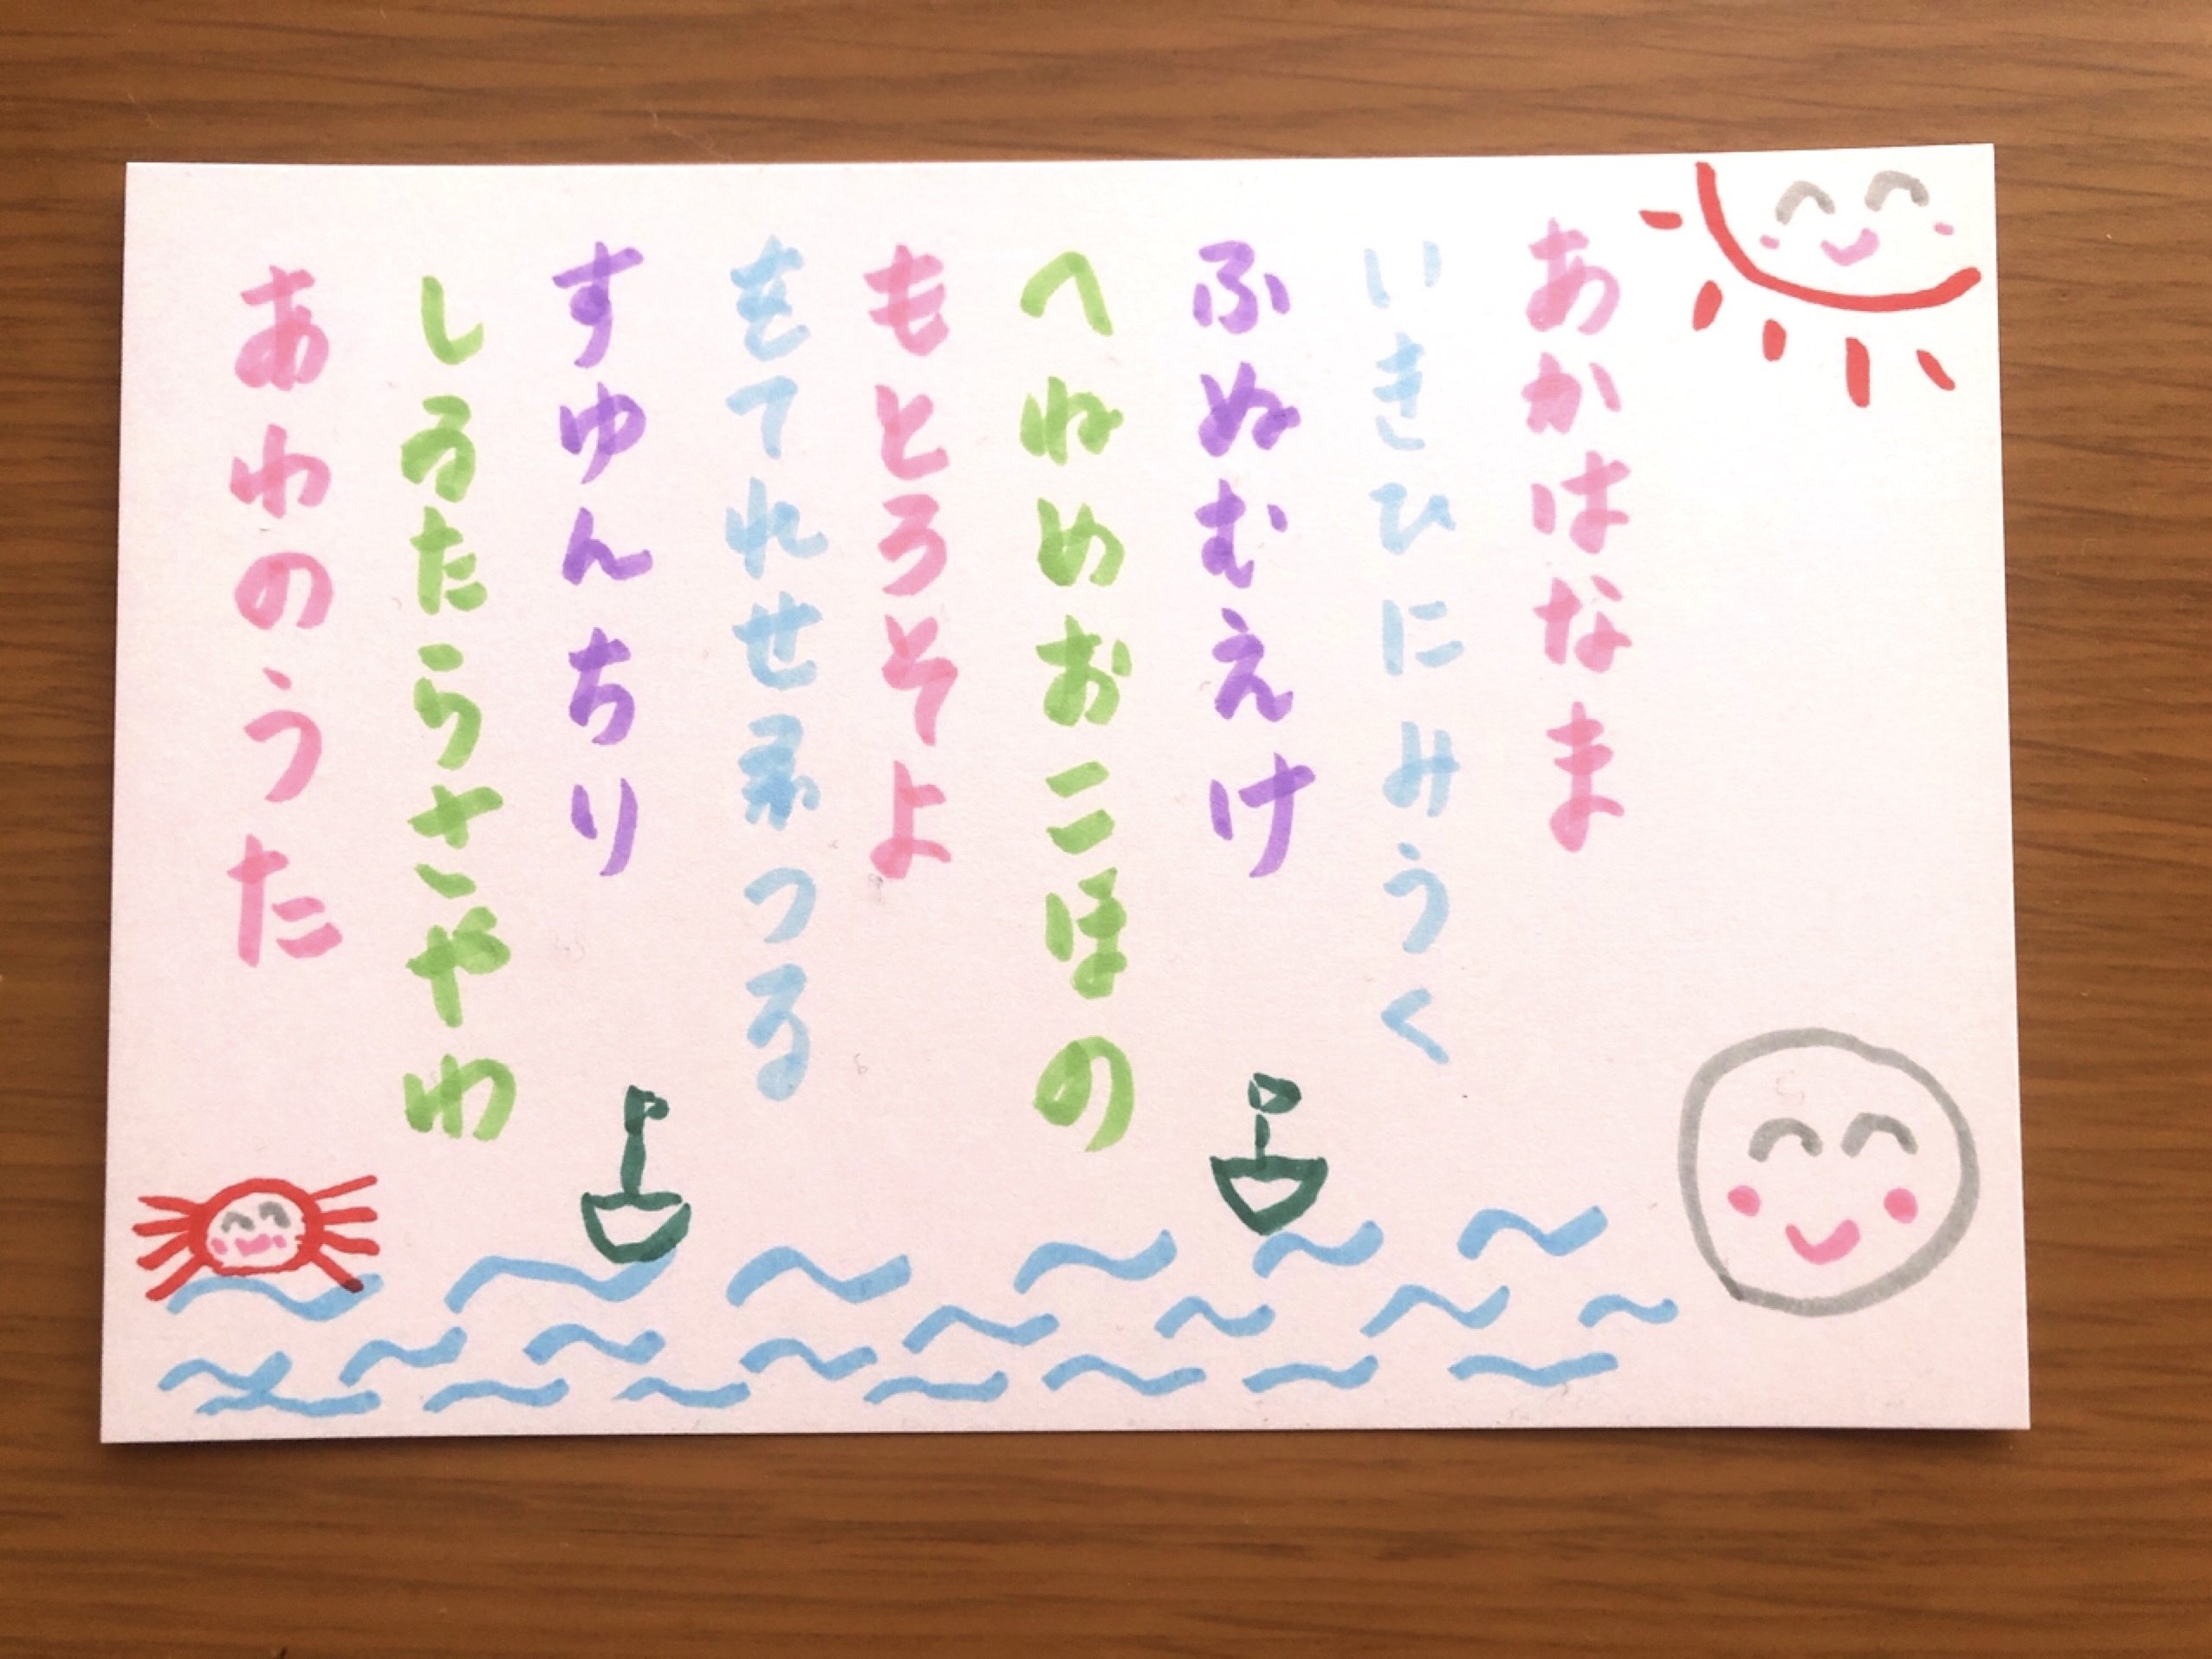 あかはなま
いきひにみうく
ふぬむえけ
へねめおこほの
もとろそよ
をてれせゑつる
すゆんちり
しゐたらさやわ
あわのうた